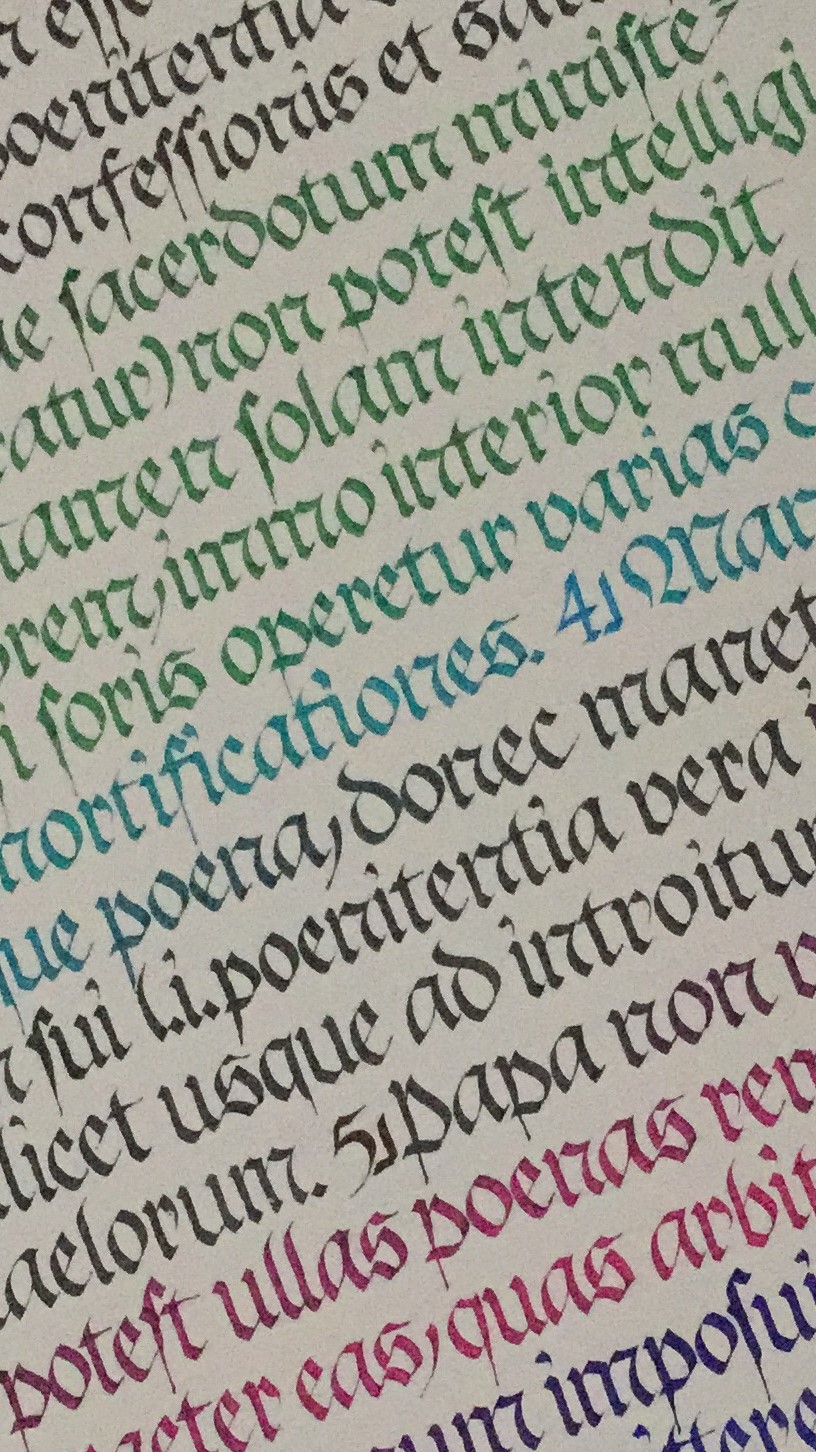 n eſſe
poenitentia
confeſſionis et sati
ue ſacerdotum miniſte⸗
ratur) non poteſt intelligi
tamen ſolam intendit
orem, immo interior null
i foris operetur varias c
mortificationes. 4) Man
que poena, donec manet
m ſui (.i. poenitentia vera i
licet usque ad introitum
aelorum. 5) Papa non v
poteſt ullas poenas rem
aeter eas, quas arbit
um impoſui
ittere